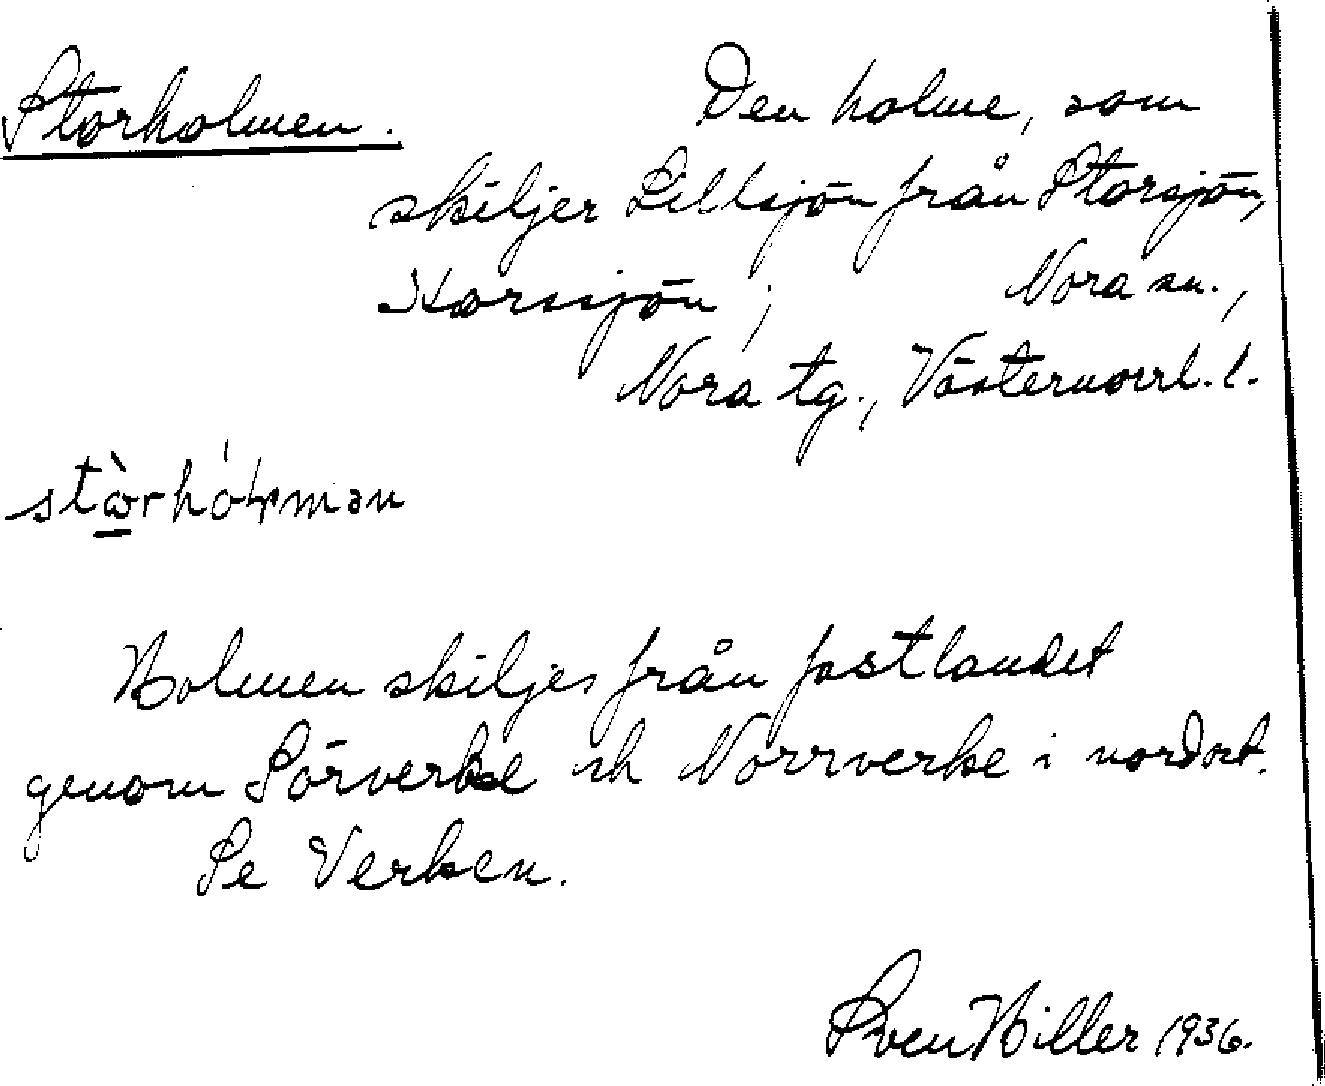 Storholmen. Den holme, som
skiljer Lillsjön från Storsjön,
Horssjön; Nora sn.,
Nora tg., Västernorrl. l.
Holmen skiljes från fastlandet
genom Sörverke och Norrverke i nordost.
Se Verken.
Sven Hiller 1936.